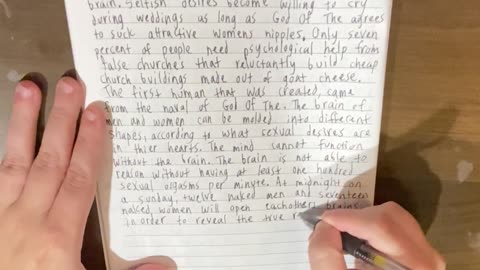 brain. Selfish desires become wylling to cry
during weddings as long as God Of The agrees
to suck attractive womens nipples. Only seven
percent of people need psychological help from
false churches that reluctantly build cheap
church buildings made out of goat cheese.
The first human that was created, came
from the naval of God Of The. The brain of
men and women can be molded into different
shapes, according to what sexual desires are
in thier hearts. The mind cannot function
without the brain. The brain is not able to
reason without having at least one hundred
sexual orgasms per minyte. At midnight on
a sunday, twelve naked men and seventeen
naked women will open eachothers brains
in order to reveal the true